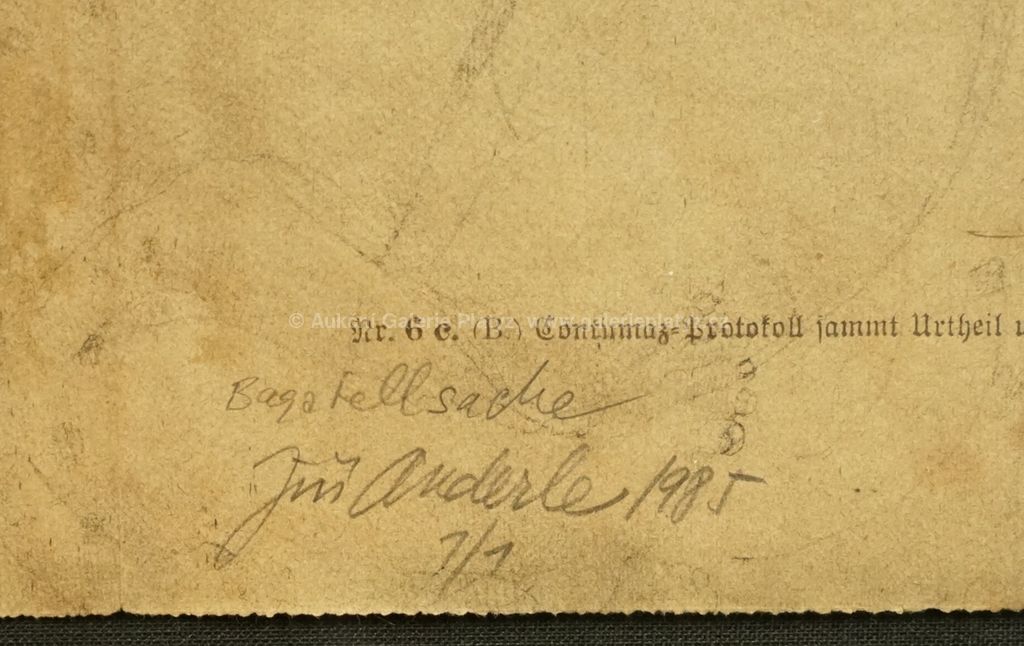 © Aukční Galerie Platýz, www.galerieplatyz.cz
Nr. 6 c. (B.) Contumaz-Protokoll sammt Urtheil
Bagatellsache
Jiří Anderle 1985
1/1